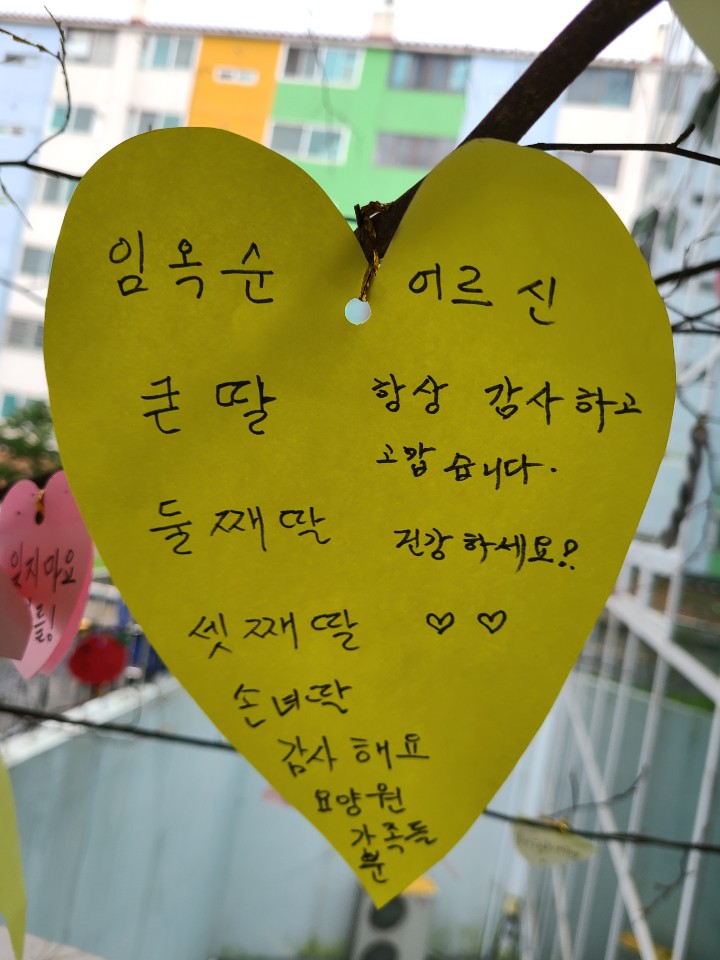 임옥순 어르신
큰딸 항상 감사하고
고맙습니다.
둘째딸 건강하세요!!
셋째딸 ♡ ♡
손녀딸
감사해요
요양원
가족들
분
잊지마요